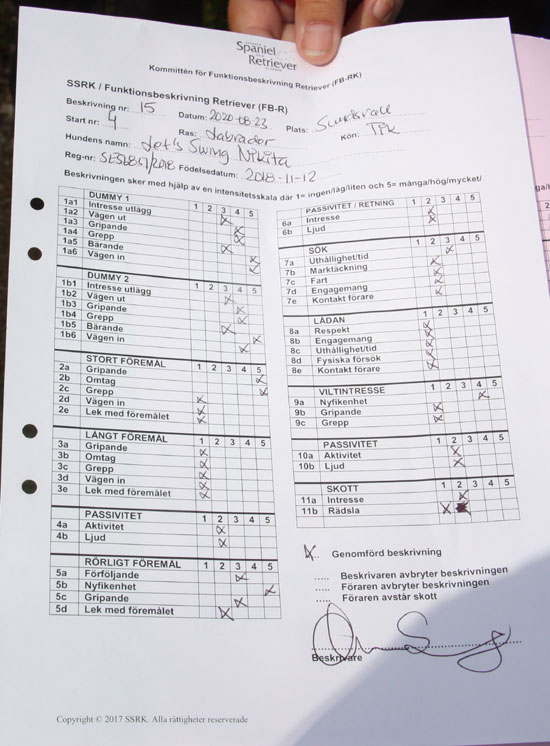 Spaniel
Retriever
Kommittén för Funktionsbeskrivning Retriever (FB-RK)
SSRK / Funktionsbeskrivning Retriever (FB-R)
Beskrivning nr: 15 Datum: 2020-08-23 Plats: Sundsvall
Start nr: 4 Ras: Labrador Kön: Tik
Hundens namn: Let's Swing Nikita
Reg-nr: Födelsedatum: 2018-11-12
Beskrivningen sker med hjälp av en intensitetsskala där 1= ingen/låg/liten och 5= många/hög/mycket/
DUMMY 1 1 2 3 4 5
1a1 Intresse utlägg
1a2 Vägen ut
1a3 Gripande
1a4 Grepp
1a5 Bärande
1a6 Vägen in
DUMMY 2 1 2 3 4 5
1b1 Intresse utlägg
1b2 Vägen ut
1b3 Gripande
1b4 Grepp
1b5 Bärande
1b6 Vägen in
STORT FÖREMÅL 1 2 3 4 5
2a Gripande
2b Omtag
2c Grepp
2d Vägen in
2e Lek med föremålet
LÅNGT FÖREMÅL 1 2 3 4 5
3a Gripande
3b Omtag
3c Grepp
3d Vägen in
3e Lek med föremålet
PASSIVITET 1 2 3 4 5
4a Aktivitet
4b Ljud
RÖRLIGT FÖREMÅL 1 2 3 4 5
5a Förföljande
5b Nyfikenhet
5c Gripande
5d Lek med föremålet
PASSIVITET / RETNING 1 2 3 4 5
6a Intresse
6b Ljud
SÖK 1 2 3 4 5
7a Uthållighet/tid
7b Marktäckning
7c Fart
7d Engagemang
7e Kontakt förare
LÅDAN 1 2 3 4 5
8a Respekt
8b Engagemang
8c Uthållighet/tid
8d Fysiska försök
8e Kontakt förare
VILTINTRESSE 1 2 3 4 5
9a Nyfikenhet
9b Gripande
9c Grepp
PASSIVITET 1 2 3 4 5
10a Aktivitet
10b Ljud
SKOTT 1 2 3 4 5
11a Intresse
11b Rädsla
X.. Genomförd beskrivning
..... Beskrivaren avbryter beskrivningen
..... Föraren avbryter beskrivningen
..... Föraren avstår skott
Beskrivare
Copyright © 2017 SSRK. Alla rättigheter reserverade